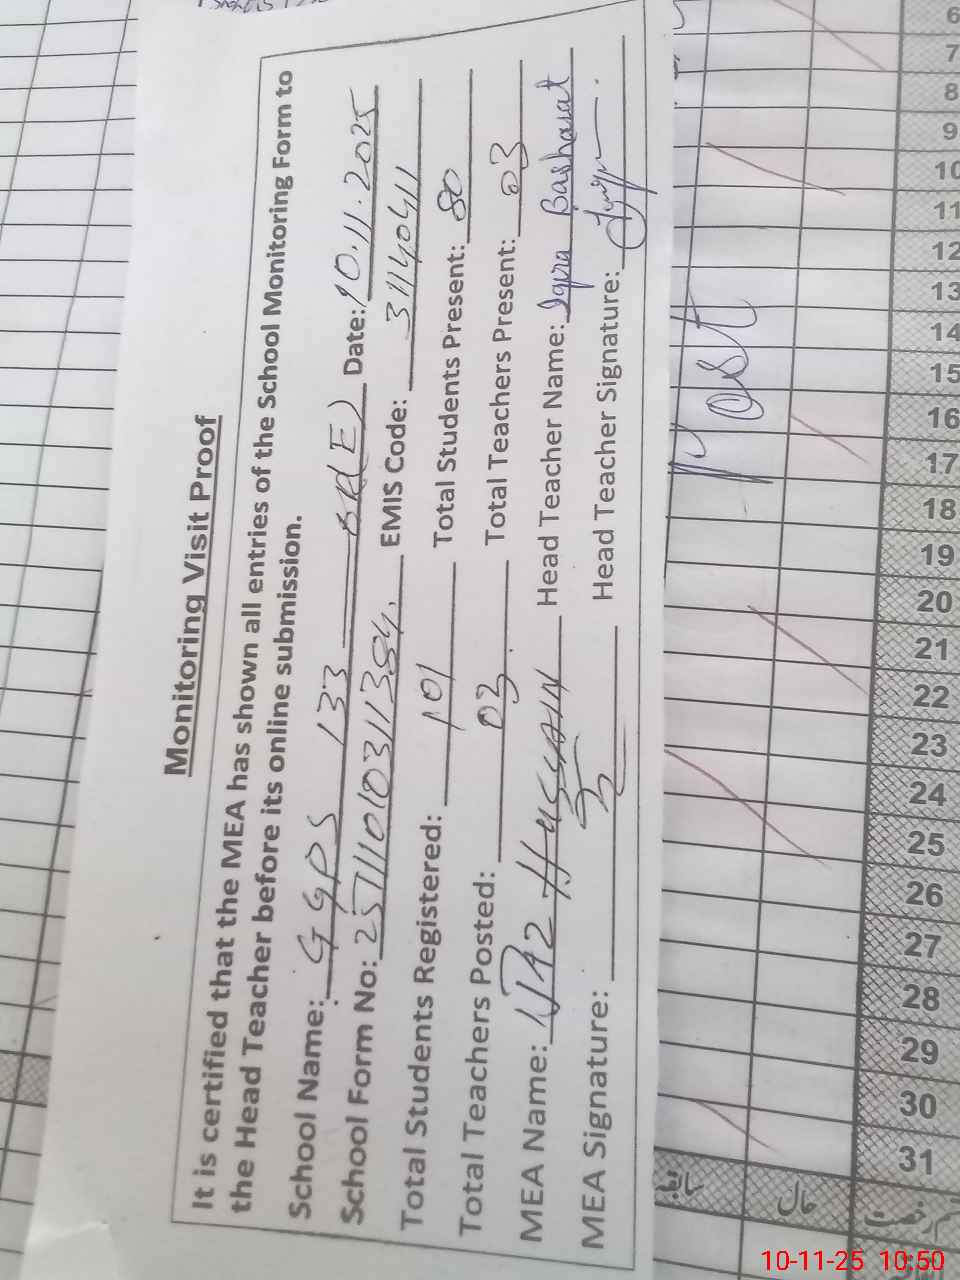 Monitoring Visit Proof
It is certified that the MEA has shown all entries of the School Monitoring Form to
the Head Teacher before its online submission.
School Name: GGPS 133 BR(E) Date: 10.11.2025
School Form No: EMIS Code:
Total Students Registered: 101 Total Students Present: 80
Total Teachers Posted: 03 Total Teachers Present: 03
MEA Name: Hussain Head Teacher Name: Iqra Basharat
MEA Signature: Head Teacher Signature:
Post
6
7
8
9
10
11
12
13
14
15
16
17
18
19
20
21
22
23
24
25
26
27
28
29
30
31
سابقہ
حال
10-11-25 10:50